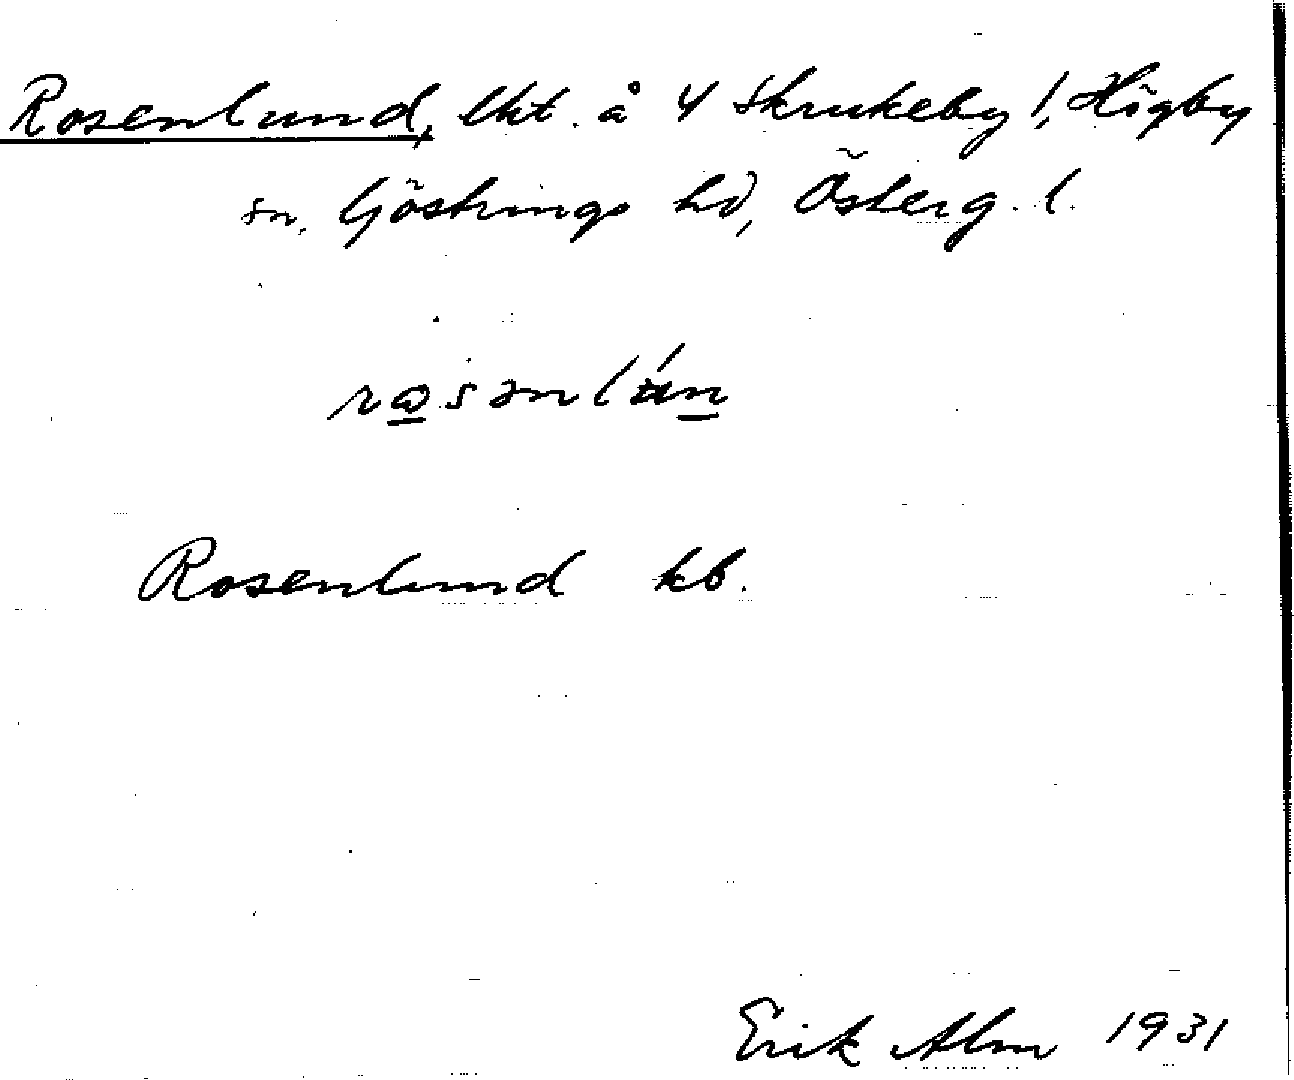 Rosenlund, lht. å 4 Skrukeby 1, Högby
sn, Göstrings hd, Österg. l.
Rosenlund kb.
Erik Alm 1931